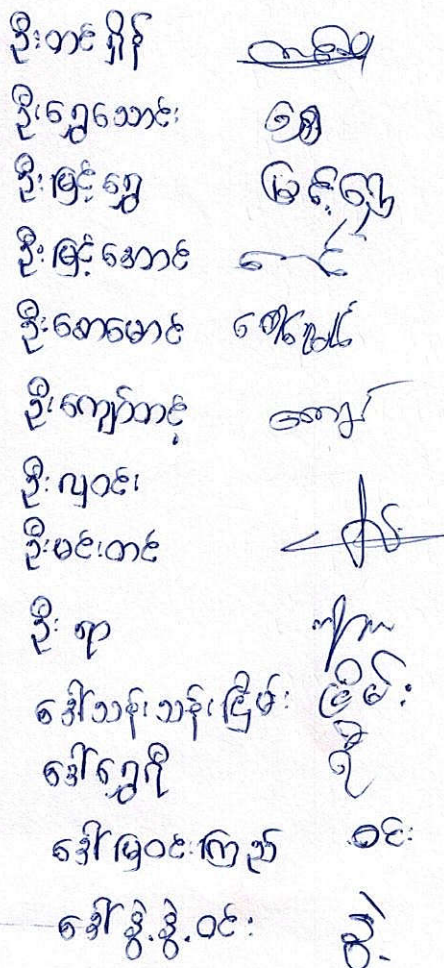 ဦးတင်ရှိန်
ဦးရွှေသောင်း ရွှေ
ဦးမြင့်ရွှေ မြင့်ရွှေ
ဦးမြင့်အောင် အောင်
ဦးစောမောင်
ဦးကျော်တင့် ကျော်
ဦးလှဝင်း
ဦးမင်းတင်
ဦးရာ
ဒေါ်သန်းသန်းငြိမ်း ငြိမ်း
ဒေါ်ရွှေရီ ရီ
ဒေါ်မြဝင်းကြည် ဝင်း
ဒေါ်နွဲ့နွဲ့ဝင်း နွဲ့